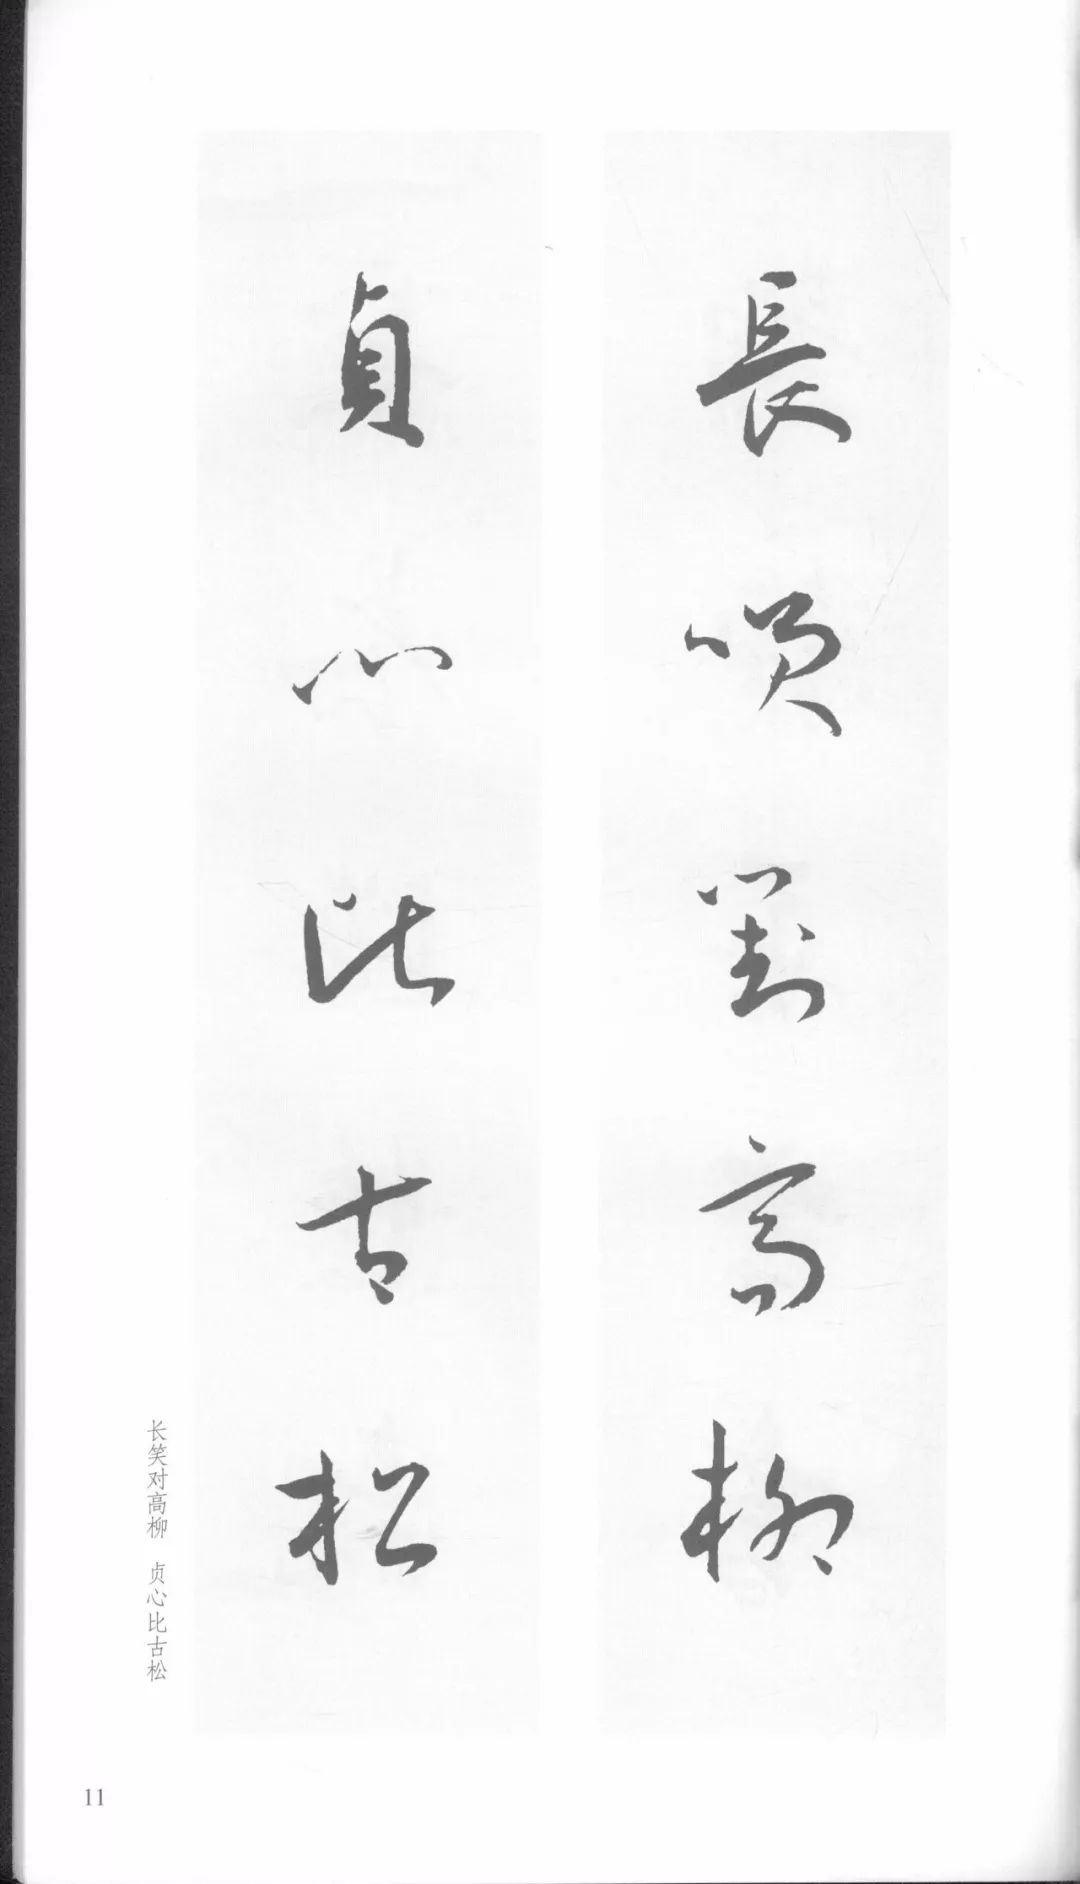 長咲對高柳
貞心比古松
长笑对高柳 贞心比古松
11